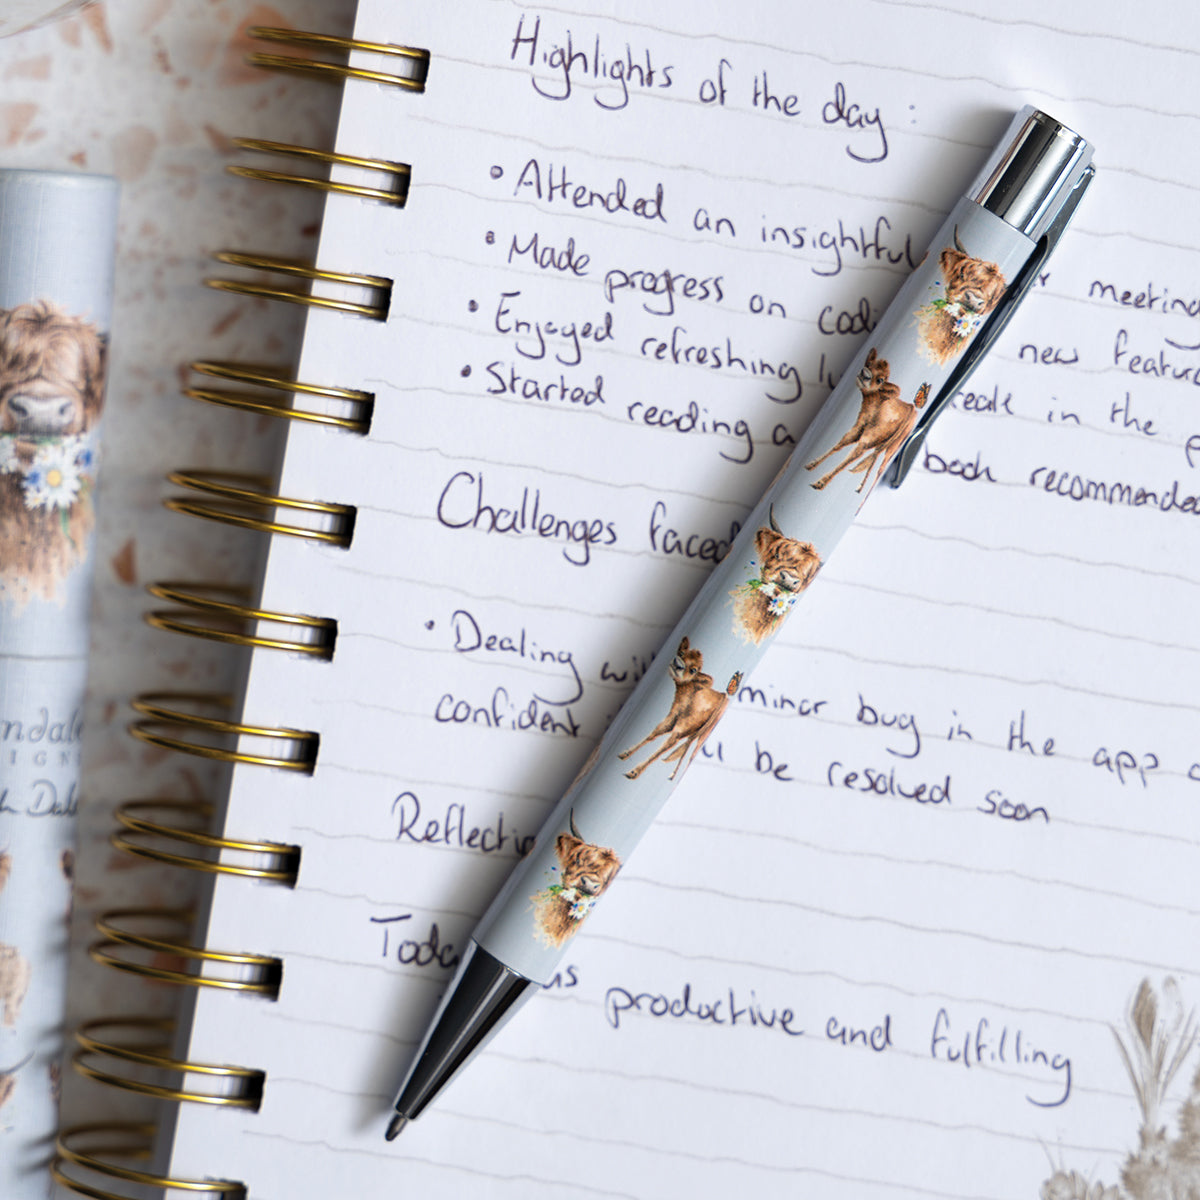 Highlights of the day :
• Attended an insightful meeting
• Made progress on new
• Enjoyed refreshing in the
• Started reading a book recommended
Challenges faced
• Dealing minor bug in the app
confident be resolved soon
productive and fulfilling